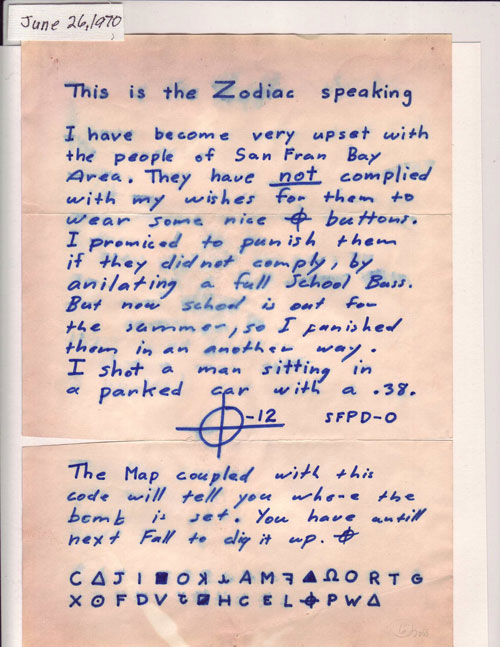 June 26, 1970
This is the Zodiac speaking
I have become very upset with
the people of San Fran Bay
Area. They have not complied
with my wishes for them to
wear some nice ⌖ buttons.
I promiced to punish them
if they did not comply, by
anilating a full School Buss.
But now school is out for
the summer, so I punished
them in an another way.
I shot a man sitting in
a parked car with a .38.
⌖-12 SFPD-0
The Map coupled with this
code will tell you where the
bomb is set. You have untill
next Fall to dig it up. ⌖
C Δ J I ■ O ꓘ ⅄ A M ꟻ ▲ Ω O R T G
X ⊙ F D V Ⴀ ◪ H C E L ⌖ P W Δ